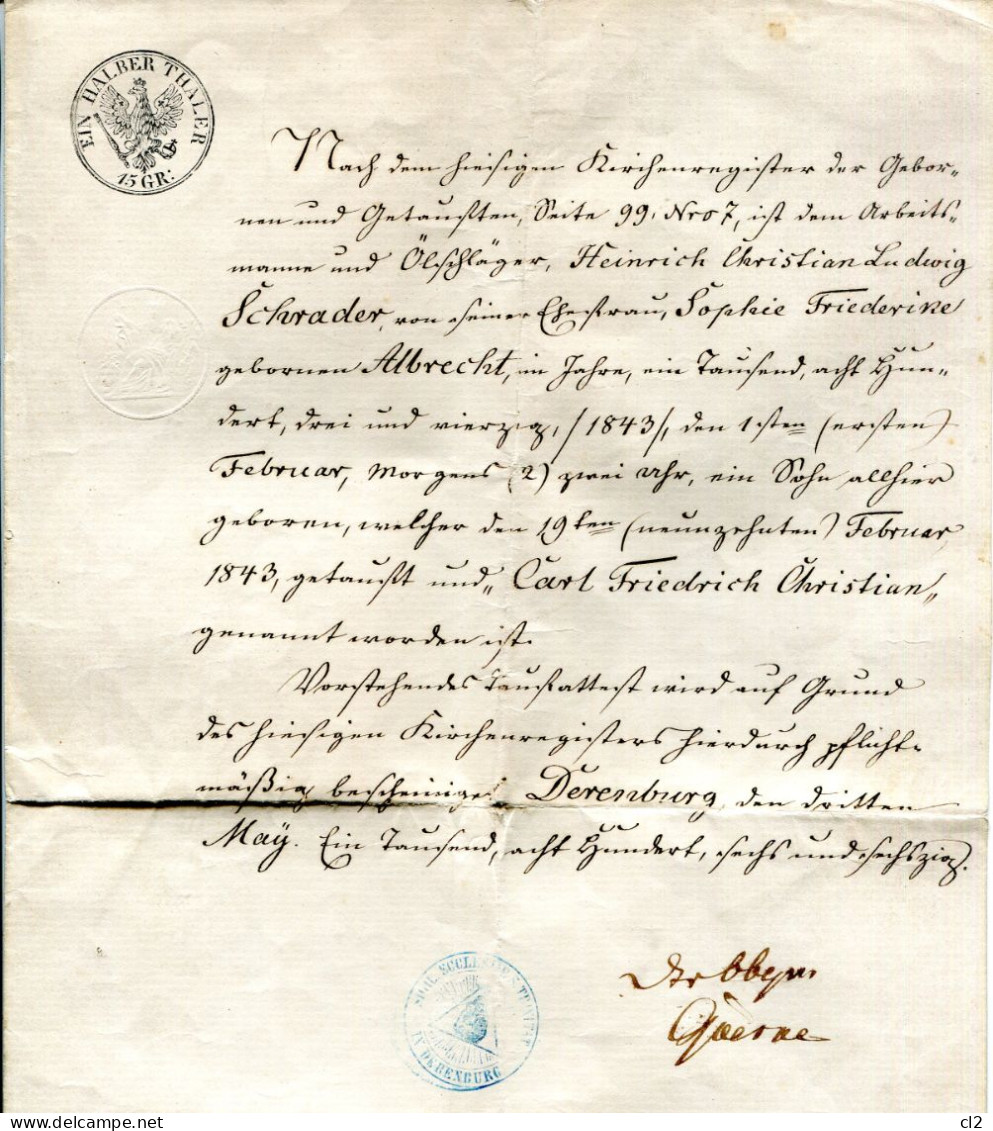 EIN HALBER THALER
15 GR:
Nach dem hiesigen Kirchenregister der Gebor-
nen und Getauften, Seite 99. Nro 7, ist dem Arbeits-
manne und Ölschläger, Heinrich Christian Ludwig
Schrader, von seiner Ehefrau, Sophie Friederike
gebornen Albrecht, im Jahre, ein Tausend, acht Hun-
dert, drei und vierzig, /1843/, den 1sten (ersten)
Februar, Morgens (2) zwei Uhr, ein Sohn allhier
geboren, welcher den 19ten (neunzehnten) Februar
1843, getauft und „Carl Friedrich Christian„
genannt worden ist.
Vorstehendes Taufattest wird auf Grund
des hiesigen Kirchenregisters hierdurch pflicht-
mäßig bescheinigt. Derenburg, den dritten
May. Ein Tausend, acht Hundert, sechs und sechszig.
IN DERENBURG